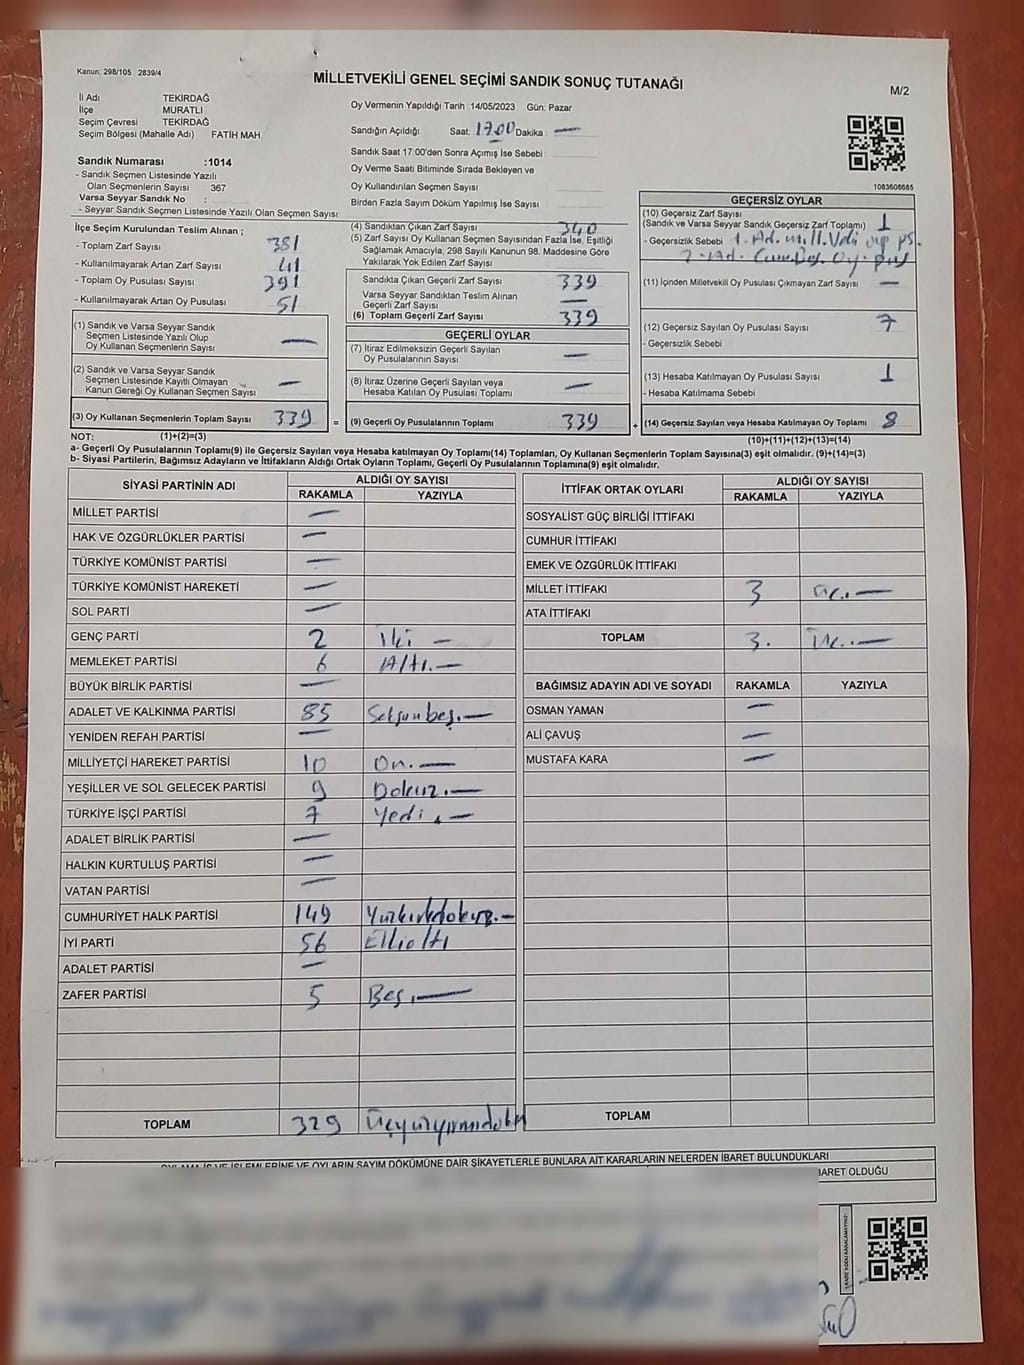 Kanun, 298/105 2839/4
MİLLETVEKİLİ GENEL SEÇİMİ SANDIK SONUÇ TUTANAĞI
M/2
İl Adı TEKİRDAĞ
İlçe MURATLI
Seçim Çevresi TEKİRDAĞ
Seçim Bölgesi (Mahalle Adı) FATİH MAH.
Sandık Numarası :1014
- Sandık Seçmen Listesinde Yazılı
Olan Seçmenlerin Sayısı 367
Varsa Seyyar Sandık No :
- Seyyar Sandık Seçmen Listesinde Yazılı Olan Seçmen Sayısı
Oy Vermenin Yapıldığı Tarih 14/05/2023 Gün: Pazar
Sandığın Açıldığı Saat: 17.00 Dakika : —
Sandık Saat 17:00'den Sonra Açımış İse Sebebi :
Oy Verme Saati Bitiminde Sırada Bekleyen ve
Oy Kullandırılan Seçmen Sayısı
Birden Fazla Sayım Döküm Yapılmış İse Sayısı
1083608685
İlçe Seçim Kurulundan Teslim Alınan ;
- Toplam Zarf Sayısı 381
- Kullanılmayarak Artan Zarf Sayısı 41
- Toplam Oy Pusulası Sayısı 391
- Kullanılmayarak Artan Oy Pusulası 51
(1) Sandık ve Varsa Seyyar Sandık
Seçmen Listesinde Yazılı Olup
Oy Kullanan Seçmenlerin Sayısı —
(2) Sandık ve Varsa Seyyar Sandık
Seçmen Listesinde Kayıtlı Olmayan
Kanun Gereği Oy Kullanan Seçmen Sayısı —
(3) Oy Kullanan Seçmenlerin Toplam Sayısı 339
(4) Sandıktan Çıkan Zarf Sayısı 340
(5) Zarf Sayısı Oy Kullanan Seçmen Sayısından Fazla İse, Eşitliği
Sağlamak Amacıyla, 298 Sayılı Kanunun 98. Maddesine Göre
Yakılarak Yok Edilen Zarf Sayısı
Sandıkta Çıkan Geçerli Zarf Sayısı 339
Varsa Seyyar Sandıktan Teslim Alınan
Geçerli Zarf Sayısı —
(6) Toplam Geçerli Zarf Sayısı 339
GEÇERLİ OYLAR
(7) İtiraz Edilmeksizin Geçerli Sayılan
Oy Pusulalarının Sayısı —
(8) İtiraz Üzerine Geçerli Sayılan veya
Hesaba Katılan Oy Pusulası Toplamı —
= (9) Geçerli Oy Pusulalarının Toplamı 339
GEÇERSİZ OYLAR
(10) Geçersiz Zarf Sayısı
(Sandık ve Varsa Seyyar Sandık Geçersiz Zarf Toplamı) 1
- Geçersizlik Sebebi 1. Ad. mill. Vekili oy ps.
(11) İçinden Milletvekili Oy Pusulası Çıkmayan Zarf Sayısı —
(12) Geçersiz Sayılan Oy Pusulası Sayısı 7
- Geçersizlik Sebebi
(13) Hesaba Katılmayan Oy Pusulası Sayısı 1
- Hesaba Katılmama Sebebi
+ (14) Geçersiz Sayılan veya Hesaba Katılmayan Oy Toplamı 8
NOT: (1)+(2)=(3)
(10)+(11)+(12)+(13)=(14)
a- Geçerli Oy Pusulalarının Toplamı(9) ile Geçersiz Sayılan veya Hesaba katılmayan Oy Toplamı(14) Toplamları, Oy Kullanan Seçmenlerin Toplam Sayısına(3) eşit olmalıdır. (9)+(14)=(3)
b- Siyasi Partilerin, Bağımsız Adayların ve İttifakların Aldığı Ortak Oyların Toplamı, Geçerli Oy Pusulalarının Toplamına(9) eşit olmalıdır.
SİYASİ PARTİNİN ADI ALDIĞI OY SAYISI
RAKAMLA YAZIYLA
MİLLET PARTİSİ —
HAK VE ÖZGÜRLÜKLER PARTİSİ —
TÜRKİYE KOMÜNİST PARTİSİ —
TÜRKİYE KOMÜNİST HAREKETİ —
SOL PARTİ —
GENÇ PARTİ 2 İki —
MEMLEKET PARTİSİ 6 Altı.—
BÜYÜK BİRLİK PARTİSİ —
ADALET VE KALKINMA PARTİSİ 85 Seksenbeş.—
YENİDEN REFAH PARTİSİ —
MİLLİYETÇİ HAREKET PARTİSİ 10 On.—
YEŞİLLER VE SOL GELECEK PARTİSİ 9 Dokuz.—
TÜRKİYE İŞÇİ PARTİSİ 7 Yedi.—
ADALET BİRLİK PARTİSİ —
HALKIN KURTULUŞ PARTİSİ —
VATAN PARTİSİ —
CUMHURİYET HALK PARTİSİ 149 Yüzkırkdokuz.—
İYİ PARTİ 56 Ellialtı
ADALET PARTİSİ —
ZAFER PARTİSİ 5 Beş.—
TOPLAM 329 Üçyüzyirmidokuz
İTTİFAK ORTAK OYLARI ALDIĞI OY SAYISI
RAKAMLA YAZIYLA
SOSYALİST GÜÇ BİRLİĞİ İTTİFAKI
CUMHUR İTTİFAKI
EMEK VE ÖZGÜRLÜK İTTİFAKI
MİLLET İTTİFAKI 3 Üç.—
ATA İTTİFAKI
TOPLAM 3. Üç.—
BAĞIMSIZ ADAYIN ADI VE SOYADI RAKAMLA YAZIYLA
OSMAN YAMAN —
ALİ ÇAVUŞ —
MUSTAFA KARA —
TOPLAM
OYLAMA İŞ VE İŞLEMLERİNE VE OYLARIN SAYIM DÖKÜMÜNE DAİR ŞİKAYETLERLE BUNLARA AİT KARARLARIN NELERDEN İBARET BULUNDUKLARI
BARET OLDUĞU